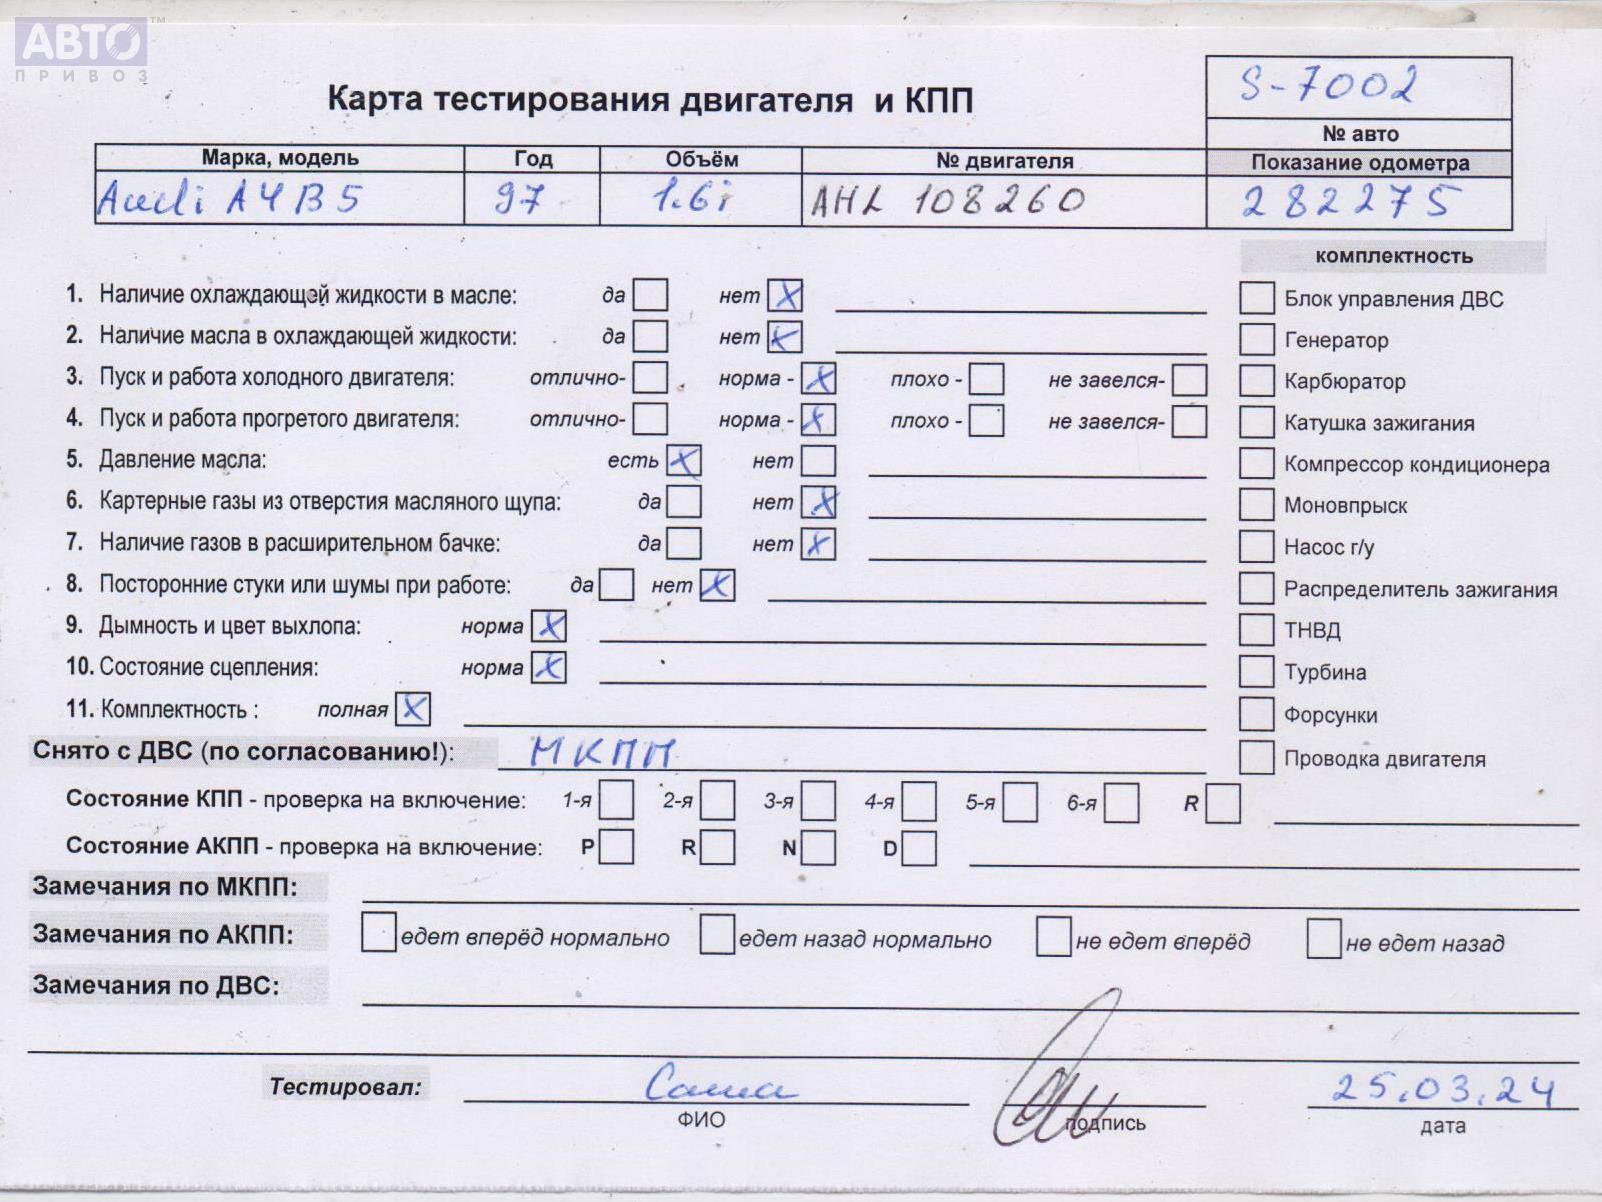 АВТО™
ПРИВОЗ
Карта тестирования двигателя и КПП
S-7002
№ авто
Марка, модель Год Объём № двигателя Показание одометра
Audi A4B5 97 1.6i AHL 108260 282275
комплектность
1. Наличие охлаждающей жидкости в масле: да нет X Блок управления ДВС
2. Наличие масла в охлаждающей жидкости: да нет X Генератор
3. Пуск и работа холодного двигателя: отлично- норма - X плохо - не завелся- Карбюратор
4. Пуск и работа прогретого двигателя: отлично- норма - X плохо - не завелся- Катушка зажигания
5. Давление масла: есть X нет Компрессор кондиционера
6. Картерные газы из отверстия масляного щупа: да нет X Моновпрыск
7. Наличие газов в расширительном бачке: да нет X Насос г/у
8. Посторонние стуки или шумы при работе: да нет X Распределитель зажигания
9. Дымность и цвет выхлопа: норма X ТНВД
10. Состояние сцепления: норма X Турбина
11. Комплектность : полная X Форсунки
Снято с ДВС (по согласованию!): МКПП Проводка двигателя
Состояние КПП - проверка на включение: 1-я 2-я 3-я 4-я 5-я 6-я R
Состояние АКПП - проверка на включение: P R N D
Замечания по МКПП:
Замечания по АКПП: едет вперёд нормально едет назад нормально не едет вперёд не едет назад
Замечания по ДВС:
Тестировал: Саша 25.03.24
ФИО подпись дата